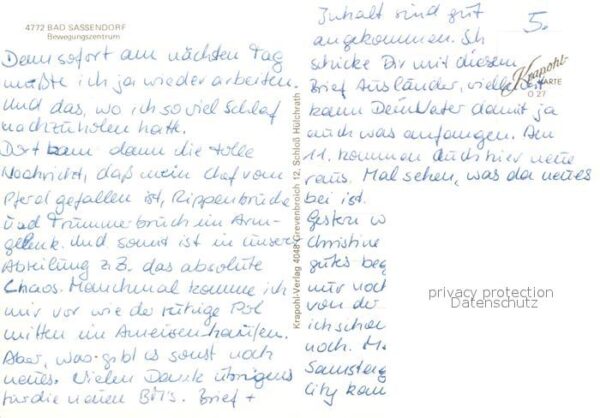 4772 BAD SASSENDORF
Bewegungszentrum
Denn sofort am nächsten Tag
mußte ich ja wieder arbeiten.
Und das, wo ich so viel Schlaf
nachzuholen hatte.
Dort kam dann die tolle
Nachricht, daß mein Chef vom
Pferd gefallen ist, Rippenbrüche
und Trümmerbruch im Arm-
gelenk. Und somit ist in unserer
Abteilung z.B. das absolute
Chaos. Manchmal komme ich
mir vor wie der ruhige Pol
mitten im Ameisenhaufen.
Aber, was gibt es sonst noch
neues. Vielen Dank übrigens
für die neuen Brief +
Krapohl-Verlag 4048 Grevenbroich 12, Schloß Hülchrath
5.
Inhalt sind gut
angekommen. Ich
schicke Dir mit diesem
Brief Ausländer, vielleicht
kann Dein Vater damit ja
auch was anfangen. Am
11. kommen auch hier neue
raus. Mal sehen, was da neues
bei ist.
Gestern w
Christine
gutes beg
nur noch
von der
ich schon
noch. M.
Samstag
City kam
Krapohl-
KARTE
O 27
privacy protection
Datenschutz